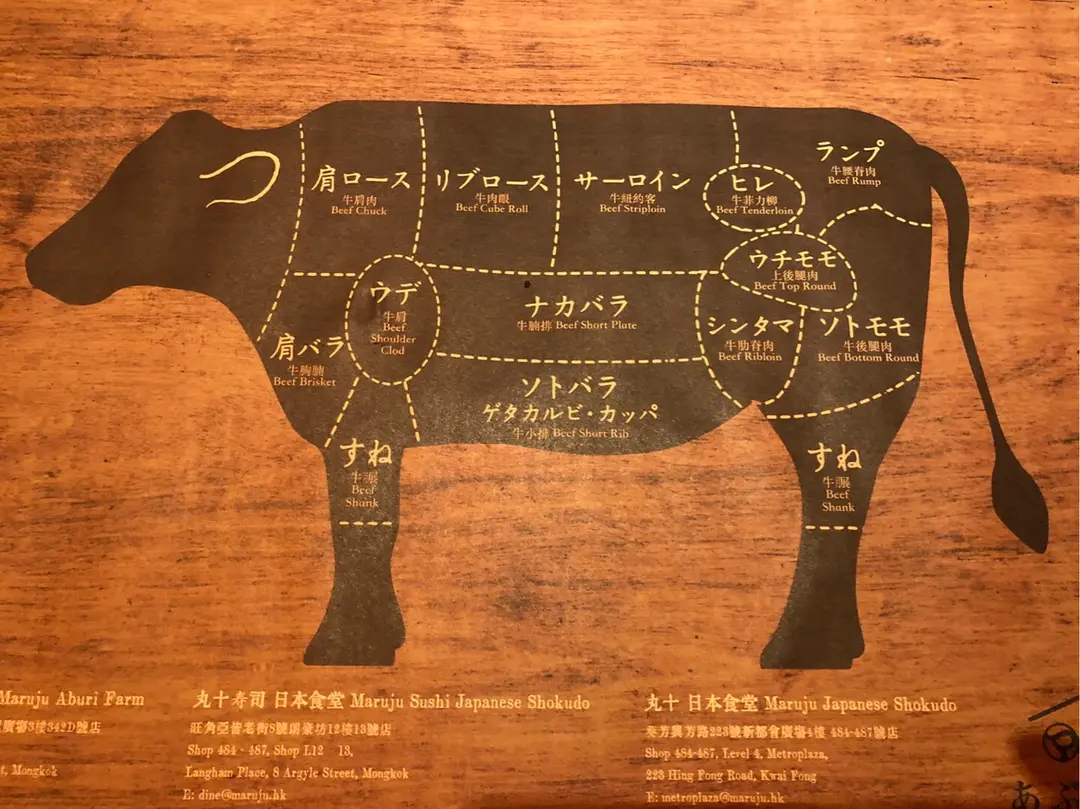 肩ロース
牛肩肉
Beef Chuck
リブロース
牛肉眼
Beef Cube Roll
サーロイン
牛紐約客
Beef Striploin
ヒレ
牛菲力柳
Beef Tenderloin
ランプ
牛腰脊肉
Beef Rump
ウチモモ
上後腿肉
Beef Top Round
ウデ
牛肩
Beef
Shoulder
Clod
ナカバラ
牛腩排 Beef Short Plate
シンタマ
牛肋脊肉
Beef Ribloin
ソトモモ
牛後腿肉
Beef Bottom Round
肩バラ
牛胸腩
Beef Brisket
ソトバラ
ゲタカルビ・カッパ
牛小排 Beef Short Rib
すね
牛𦟌
Beef
Shank
すね
牛𦟌
Beef
Shank
Maruju Aburi Farm
3樓342D號店
Mongkok
丸十寿司 日本食堂 Maruju Sushi Japanese Shokudo
旺角亞皆老街8號朗豪坊12樓13號店
Shop 484、487, Shop L12 13,
Langham Place, 8 Argyle Street, Mongkok
E: dine@maruju.hk
丸十 日本食堂 Maruju Japanese Shokudo
葵芳興芳路223號新都會廣場4樓 484-487號店
Shop 484-487, Level 4, Metroplaza,
223 Hing Fong Road, Kwai Fong
E: metroplaza@maruju.hk
あぶ